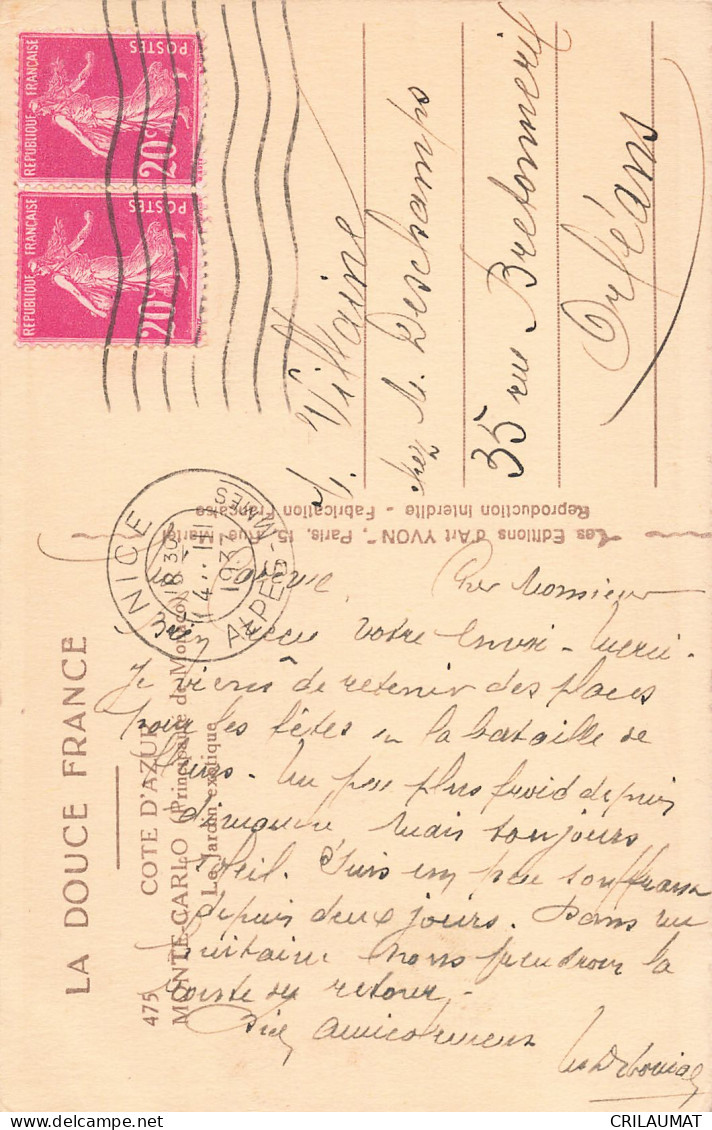 RÉPUBLIQUE FRANÇAISE
POSTES
20c
RÉPUBLIQUE FRANÇAISE
POSTES
20c
NICE
ALPES-MMES
18 30
14 · III
1937
Villaine
chez M. Deschamps
35 rue Bretonnerie
Orléans
"Les Editions d'Art YVON", Paris, 15, Rue Martel
Reproduction Interdite - Fabrication Française
LA DOUCE FRANCE
COTE D'AZUR
475 MONTE-CARLO (Principauté de Monaco)
Le Jardin exotique
Cher Monsieur
Bien reçu votre envoi - merci -
Je viens de retenir des places
pour les fêtes la bataille de
fleurs. Un peu plus froid depuis
dimanche mais toujours
soleil. Suis un peu
depuis deux jours. Dans
nous prendrons la
retour.
Bien amicalement
CRILAUMAT